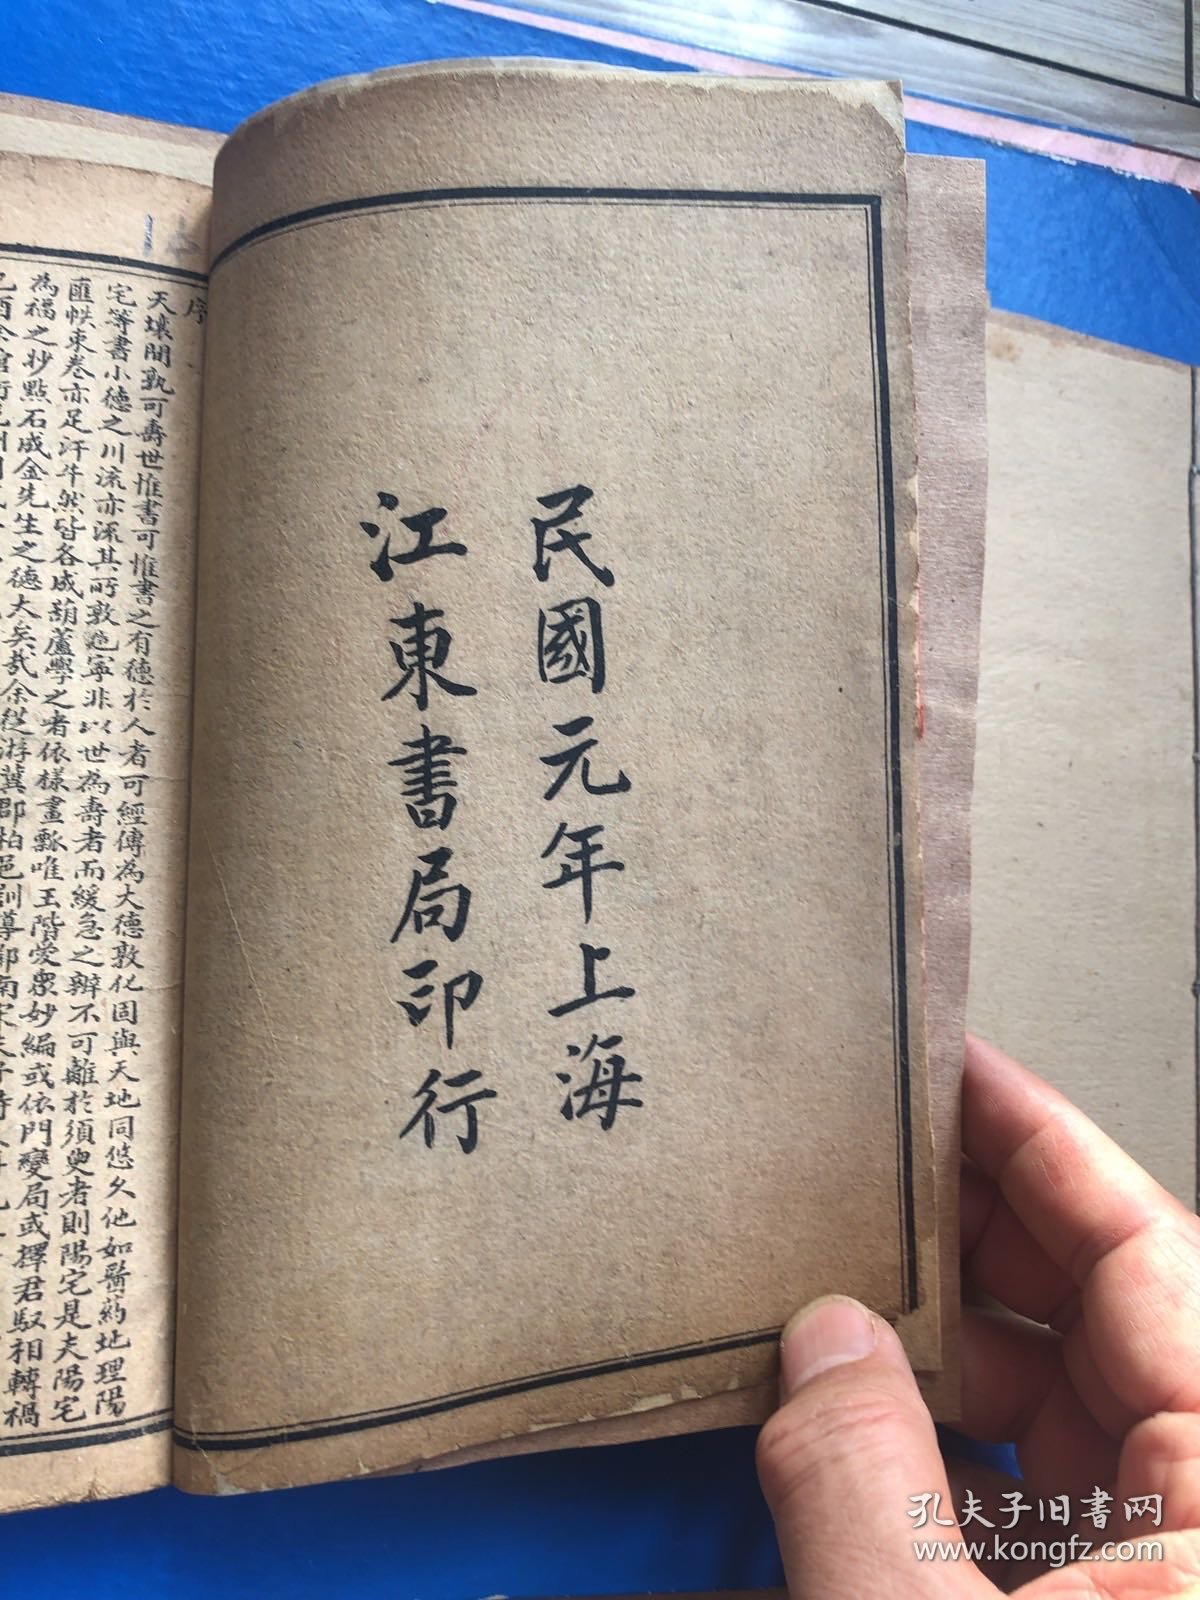 民國元年上海
江東書局印行
序
天壤間孰可壽世惟書可惟書之有德於人者可經傳為大德敦化固與天地同悠久他如醫葯地理陽
宅等書小德之川流亦深其所敦迤寧非以世為壽者而緩急之辨不可離於須臾者則陽宅是夫陽宅
匯帙束卷亦足汗牛然皆各成葫蘆學之者依樣畫瓢唯玉階愛眾妙編或依門變局或擇君馭相轉禍
為福之抄點石成金先生之德大矣哉余從游冀郡柏邑訓導
孔夫子旧书网
www.kongfz.com